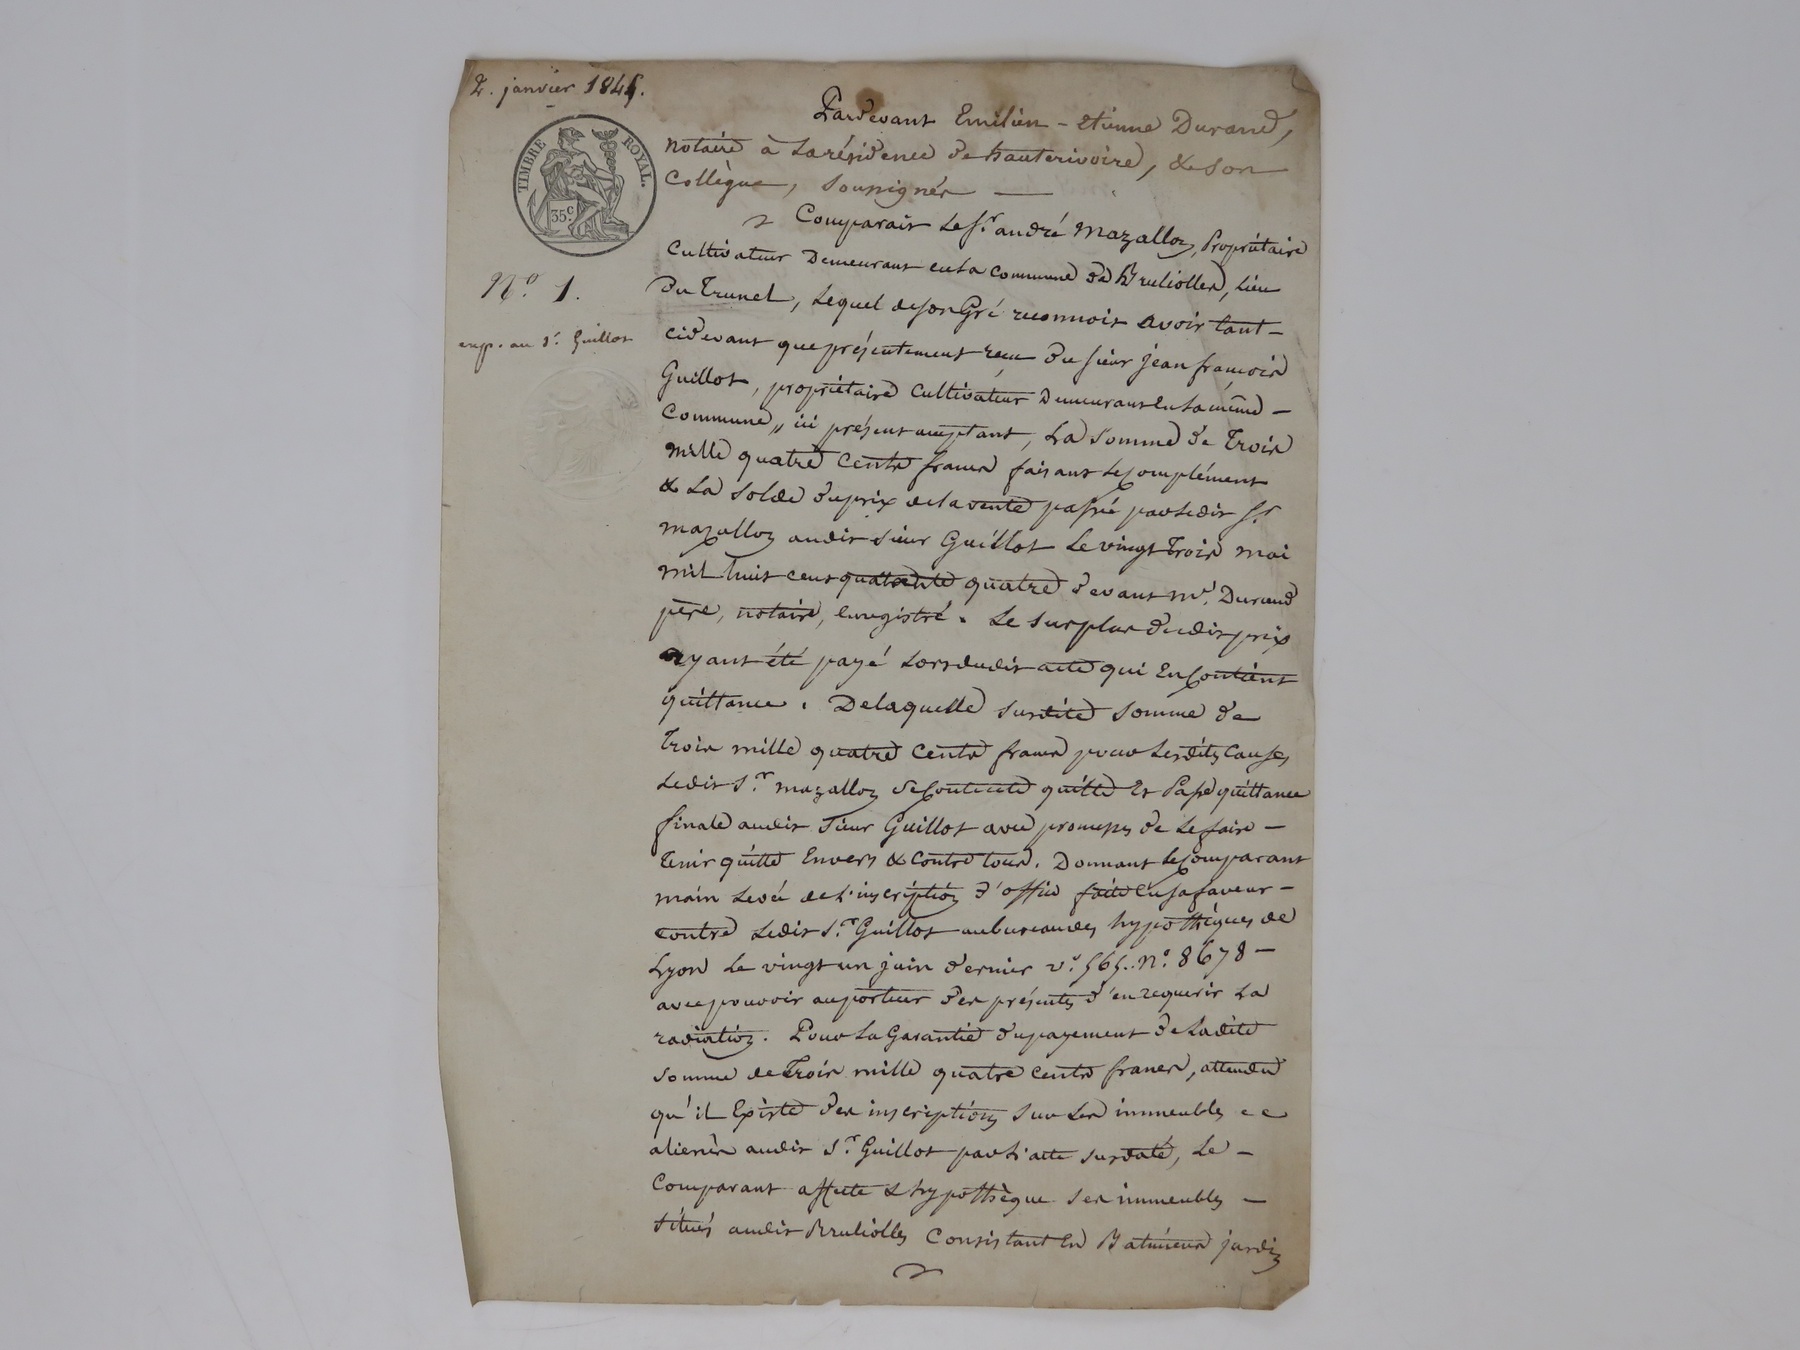 2. janvier 1845.
TIMBRE ROYAL.
35c.
N.o 1.
exp. au s.r Guillot
Pardevant Emilien - etienne Durand,
notaire à la résidence de hauterivoire, & son
collègue, soussignés
Comparait le s.r andré Mazallon, Propriétaire
Cultivateur Demeurant en la commune de Brulioller, lieu
du Trunel, lequel de son Gré reconnoit avoir tant
cidevant que présentement reçu du sieur jean françois
Guillot, propriétaire cultivateur Demeurant en la même
Commune,, ici présent acceptant, La somme de Trois
mille quatre cents francs faisant le complément
& La solde du prix de la vente passée par ledit s.r
mazallon audit sieur Guillot le vingt trois mai
mil huit cent quarante quatre devant m.e Durand
père, notaire, Enregistré. Le surplus dudit prix
ayant été payé lors dudit acte qui En Contient
quittance. De laquelle susdite somme de
Trois mille quatre cents francs pour lesdites causes
ledit s.r mazallon se contente quitte Et Passe quittance
finale audit sieur Guillot avec promesses de le faire
Tenir quitte Envers & contre tous. Donnant le comparant
main levée de l'inscription d'office faite En sa faveur
contre ledit s.r Guillot au bureau des hypothèques de
Lyon le vingt un juin dernier v.o 565. n.o 8678
avec pouvoir au porteur des présentes d'en requerir La
radiation. Pour La Garantie du payement de Ladite
somme de Trois mille quatre cents francs, attendu
qu'il Existe des inscriptions sur les immeubles
alienés audit s.r Guillot par l'acte susdaté, Le
Comparant affecte & hypothèque ses immeubles
situés audit Bruliolles Consistant En Batiments jardin